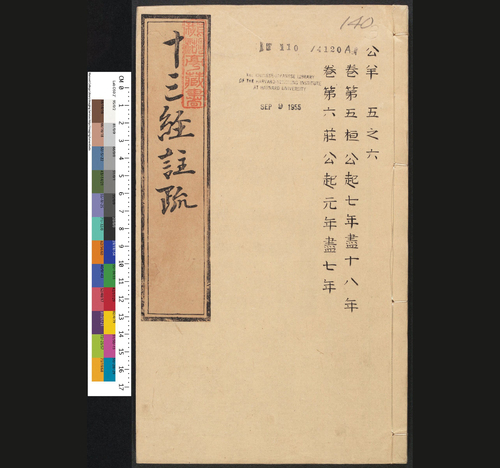 140
公羊 五之六
卷第五桓公起七年盡十八年
卷第六莊公起元年盡七年
十三經註疏
THE CHINESE-JAPANESE LIBRARY
OF THE HARVARD-YENCHING INSTITUTE
AT HARVARD UNIVERSITY
SEP 1955
0 1 2 3 4 5 6 7 8 9 10 11 12 13 14 15 16 17